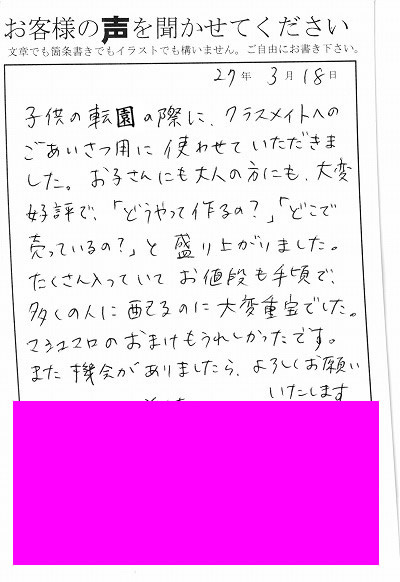 お客様の声を聞かせてください
文章でも箇条書きでもイラストでも構いません。ご自由にお書き下さい。
27年 3月 18日
子供の転園の際に、クラスメイトへの
ごあいさつ用に使わせていただきま
した。お子さんにも大人の方にも、大変
好評で、「どうやって作るの?」「どこで
売っているの?」と盛り上がりました。
たくさん入っていてお値段も手頃で、
多くの人に配るのに大変重宝でした。
マシュマロのおまけもうれしかったです。
また機会がありましたら、よろしくお願い
いたします